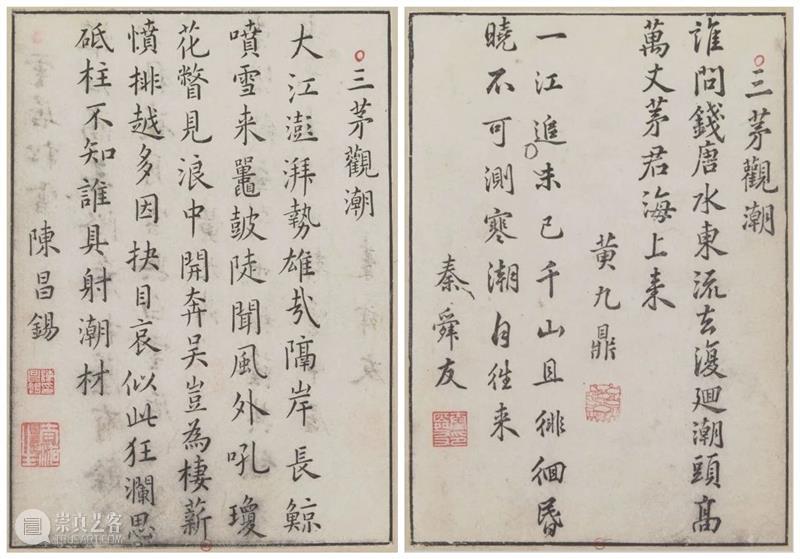 三茅觀潮
誰問錢唐水東流去復廻潮頭高
萬丈茅君海上来
黄九鼎
一江進未已千山且徘徊昏
曉不可測寒潮自往来
秦舜友
三茅觀潮
大江澎湃勢雄哉隔岸長鯨
噴雪来鼉鼓陡聞風外吼瓊
花瞥見浪中開奔吴豈為棲薪
憤排越多因抉目哀似此狂瀾思
砥柱不知誰具射潮材
陳昌錫
崇真艺客